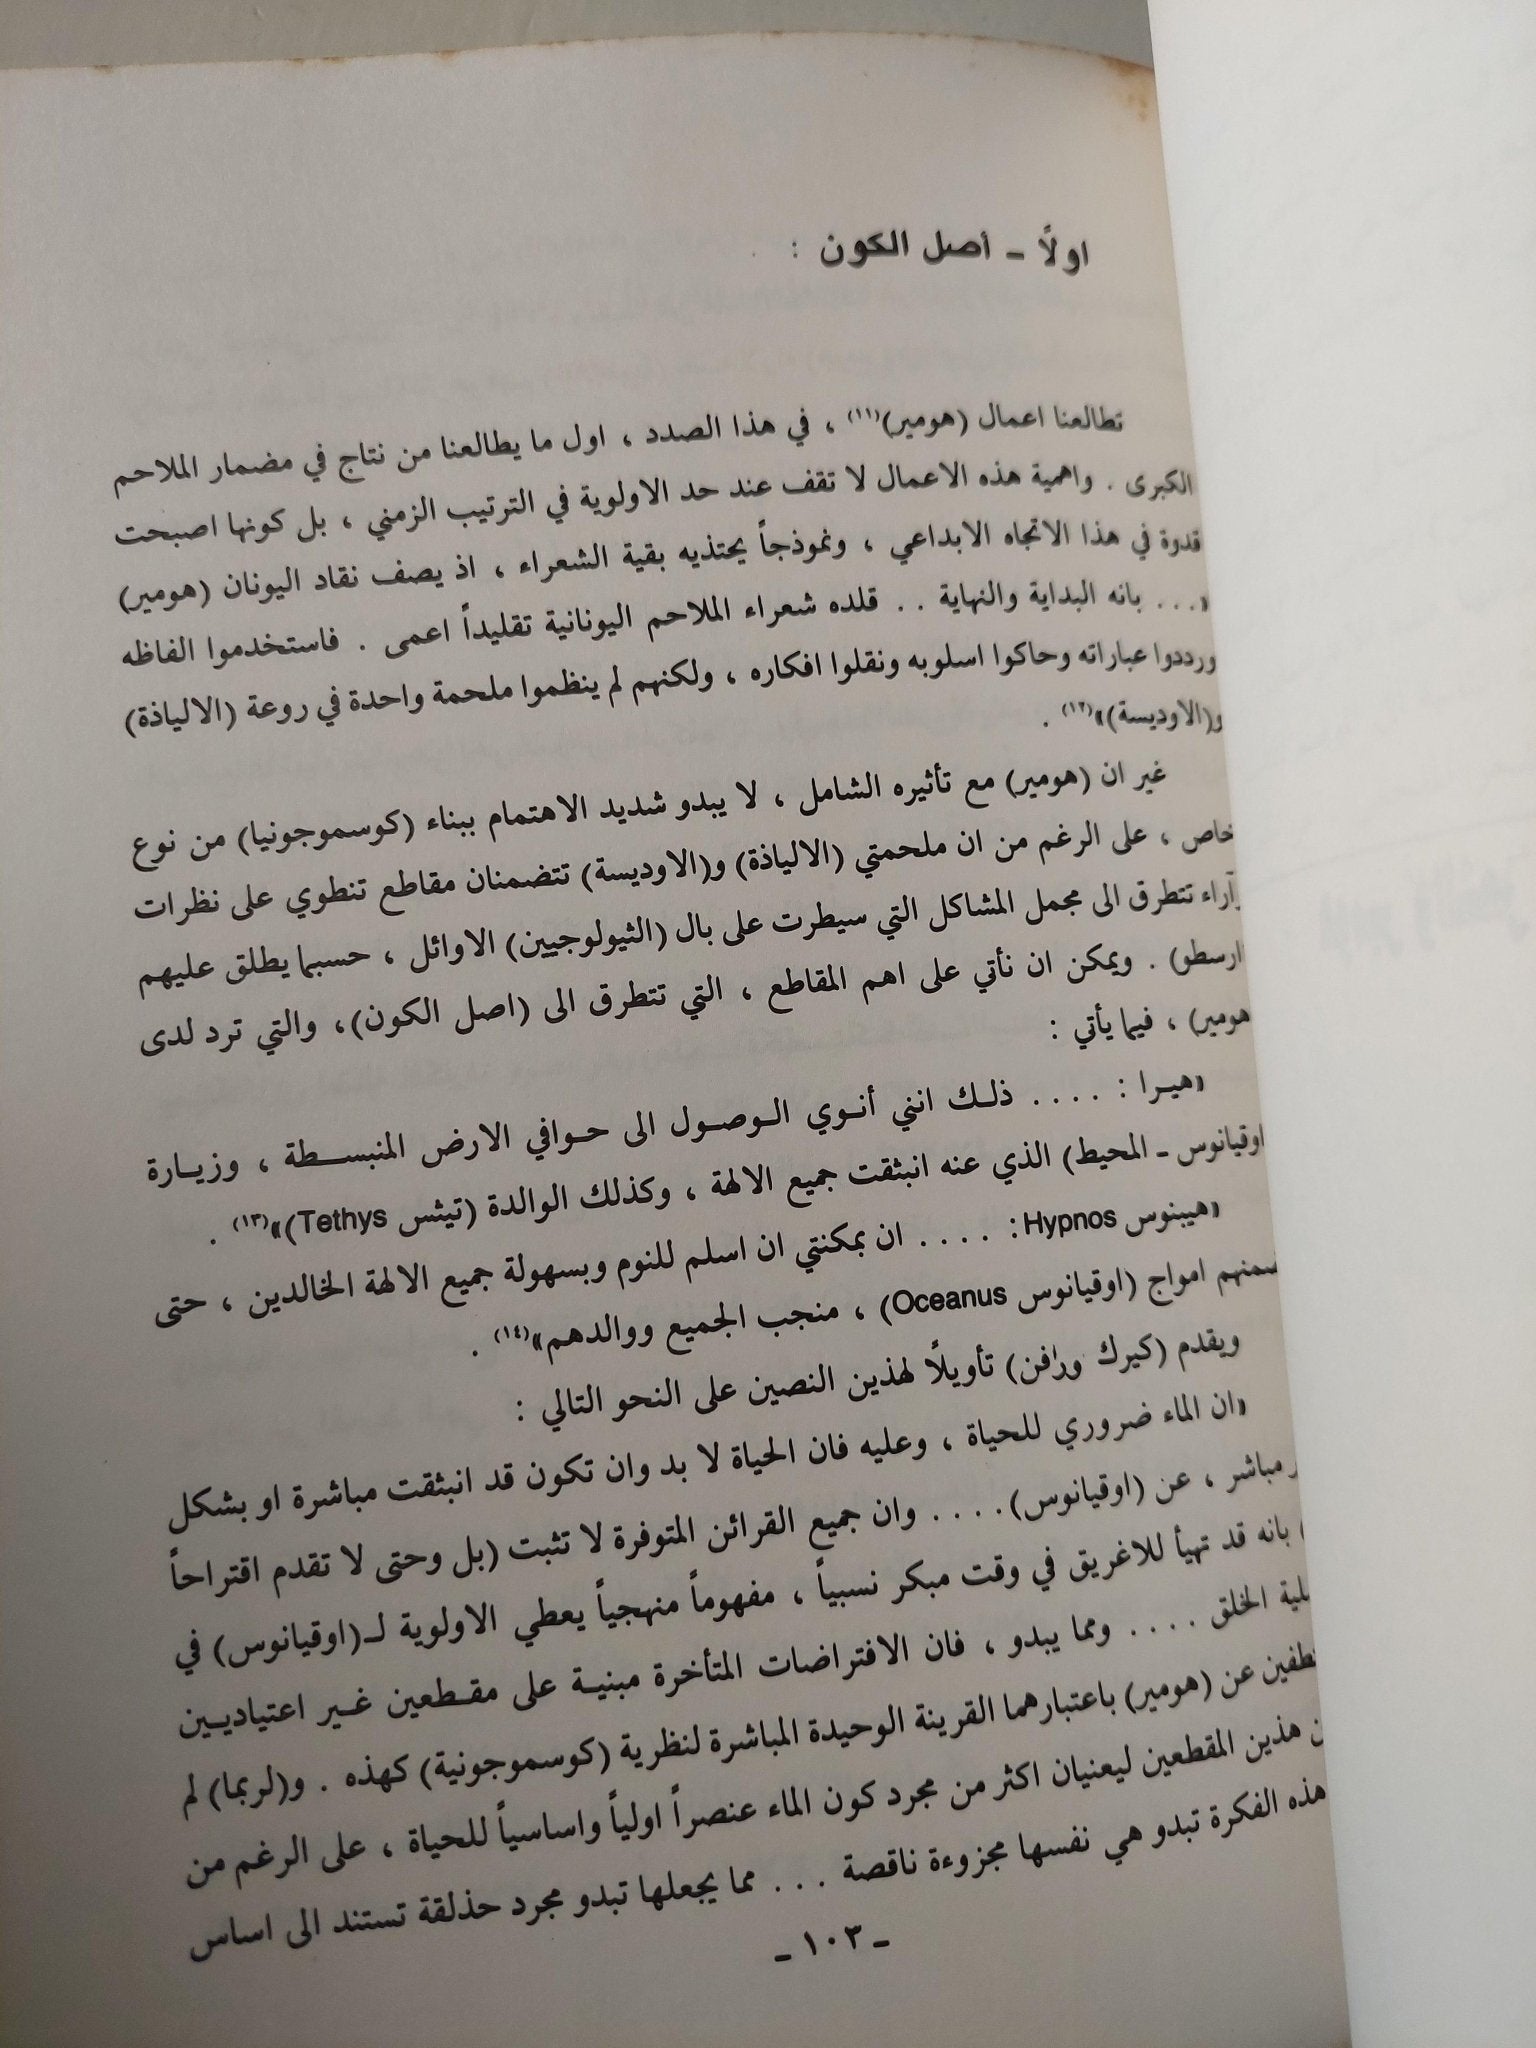 اولاً ـ أصل الكون :
تطالعنا اعمال (هومير)(١١) ، في هذا الصدد ، اول ما يطالعنا من نتاج في مضمار الملاحم
الكبرى . واهمية هذه الاعمال لا تقف عند حد الاولوية في الترتيب الزمني ، بل كونها اصبحت
قدوة في هذا الاتجاه الابداعي ، ونموذجاً يحتذيه بقية الشعراء ، اذ يصف نقاد اليونان (هومير)
«... بانه البداية والنهاية .. قلده شعراء الملاحم اليونانية تقليداً اعمى . فاستخدموا الفاظه
ورددوا عباراته وحاكوا اسلوبه ونقلوا افكاره ، ولكنهم لم ينظموا ملحمة واحدة في روعة (الالياذة)
و(الاوديسة)»(١٢) .
غير ان (هومير) مع تأثيره الشامل ، لا يبدو شديد الاهتمام ببناء (كوسموجونيا) من نوع
خاص ، على الرغم من ان ملحمتي (الالياذة) و(الاوديسة) تتضمنان مقاطع تنطوي على نظرات
آراء تتطرق الى مجمل المشاكل التي سيطرت على بال (الثيولوجيين) الاوائل ، حسبما يطلق عليهم
ارسطو) . ويمكن ان نأتي على اهم المقاطع ، التي تتطرق الى (اصل الكون)، والتي ترد لدى
هومير) ، فيما يأتي :
«هيرا : .... ذلك انني أنوي الوصول الى حوافي الارض المنبسطة ، وزيارة
اوقيانوس ـ المحيط) الذي عنه انبثقت جميع الالهة ، وكذلك الوالدة (تيثس Tethys)»(١٣) .
«هيبنوس Hypnos: .... ان بمكنتي ان اسلم للنوم وبسهولة جميع الالهة الخالدين ، حتى
امواج (اوقيانوس Oceanus) ، منجب الجميع ووالدهم»(١٤) .
ويقدم (كيرك ورافن) تأويلاً لهذين النصين على النحو التالي :
«ان الماء ضروري للحياة ، وعليه فان الحياة لا بد وان تكون قد انبثقت مباشرة او بشكل
مباشر ، عن (اوقيانوس).... وان جميع القرائن المتوفرة لا تثبت (بل وحتى لا تقدم اقتراحاً
) بانه قد تهيأ للاغريق في وقت مبكر نسبياً ، مفهوماً منهجياً يعطي الاولوية لـ(اوقيانوس) في
الخلق .... ومما يبدو ، فان الافتراضات المتأخرة مبنية على مقطعين غير اعتياديين
عن (هومير) باعتبارهما القرينة الوحيدة المباشرة لنظرية (كوسموجونية) كهذه . و(لربما) لم
هذين المقطعين ليعنيان اكثر من مجرد كون الماء عنصراً اولياً واساسياً للحياة ، على الرغم من
هذه الفكرة تبدو هي نفسها مجزوءة ناقصة ... مما يجعلها تبدو مجرد حذلقة تستند الى اساس
ـ ١٠٣ ـ